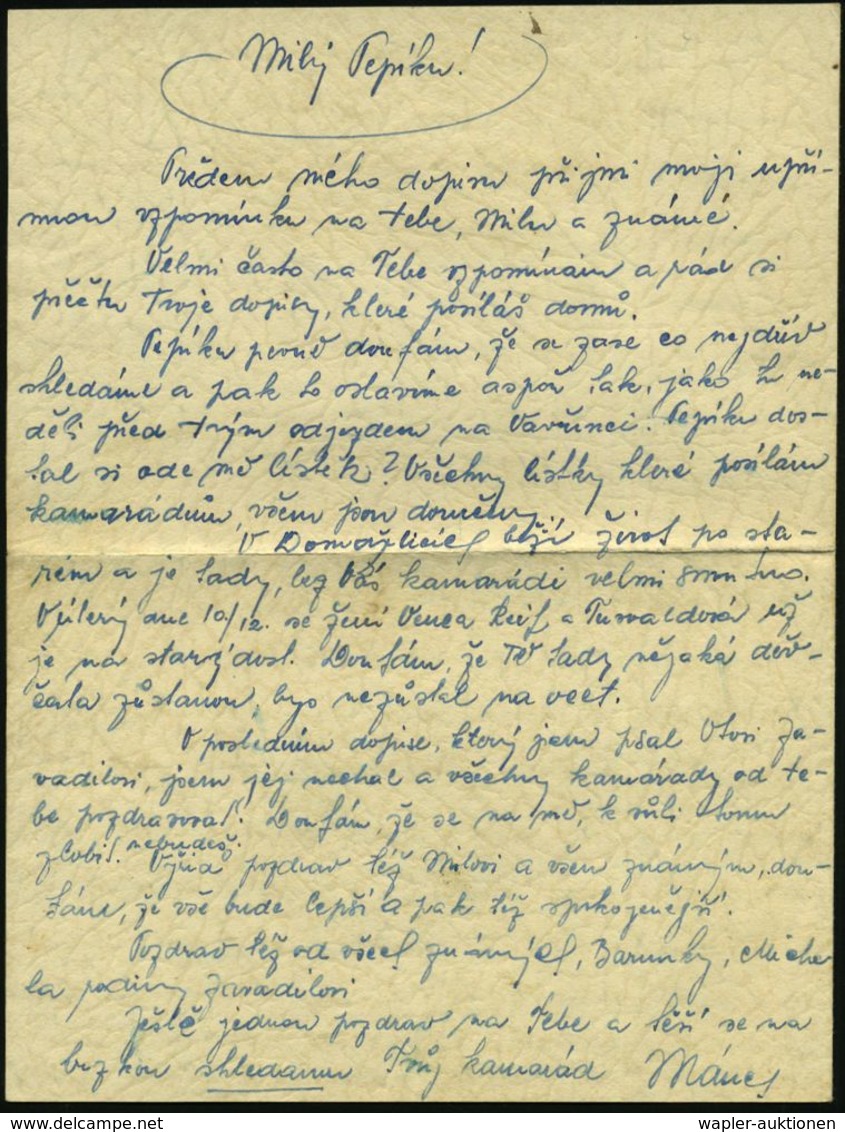 Milý Pepíku!
Předem mého dopisu přijmi moji upří-
mnou vzpomínku na tebe, Milu a známé.
Velmi často na Tebe vzpomínám a rád si
přečtu Tvoje dopisy, které posíláš domů.
Pepíku pevně doufám, že se zase co nejdřív
shledáme a pak to oslavíme aspoň tak, jako tu ne-
děli před tvým odjezdem na Vavřinci. Pepíku dos-
tal si ode mě lístek? Všechny lístky které posílám
kamarádům, všem jsou doručeny.
V Domažlicích běží život po sta-
rém a je tady, bez Vás kamarádi velmi smutno.
V úterý dne 10/12. se žení Venca a už
je na starý dost. Doufám, že Tě tady nějaká děv-
čata zůstanou, bys nezůstal na ocet.
V posledním dopise, který jsem psal Otovi Za-
vadilovi, jsem jej nechal a všechny kamarády od te-
be pozdravovat. Doufám, že se na mě, k vůli tomu
zlobit nebudeš. Vyřiď pozdrav též Milovi a všem známým, dou-
fáme, že vše bude lepší a pak též spokojenější.
Pozdrav též od všech známých, Barunky, Miche
la rodiny Zavadilovi
Ještě jednou pozdrav na Tebe a těší se na
brzkou shledanou Tvůj kamarád
wapler-auktionen